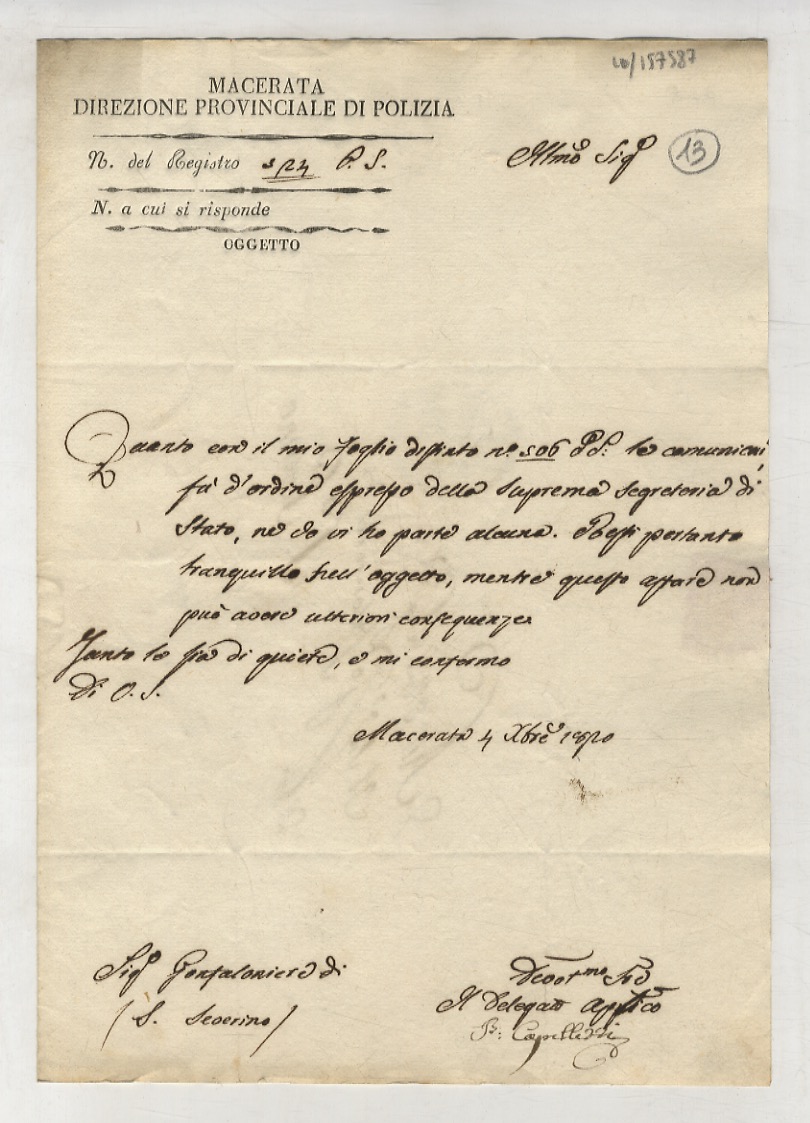 10/157587
MACERATA
DIREZIONE PROVINCIALE DI POLIZIA
N. del Registro 524 P. S.
Illmo Sigr
13
N. a cui si risponde
OGGETTO
Quanto con il mio foglio distinto n.º 506 P. S: le comunicai,
fù d'ordine espresso della Suprema Segreteria di
Stato, ne io vi ho parte alcuna. Resti pertanto
tranquillo sull'oggetto, mentre questo affare non
può avere ulteriori conseguenze.
Tanto le sia di quiete, e mi confermo
Di V. S.
Macerata 4 Xbre 1820
Sigr Gonfaloniere di
/ S. Severino /
Devotmo Sre
Il Delegato Applico